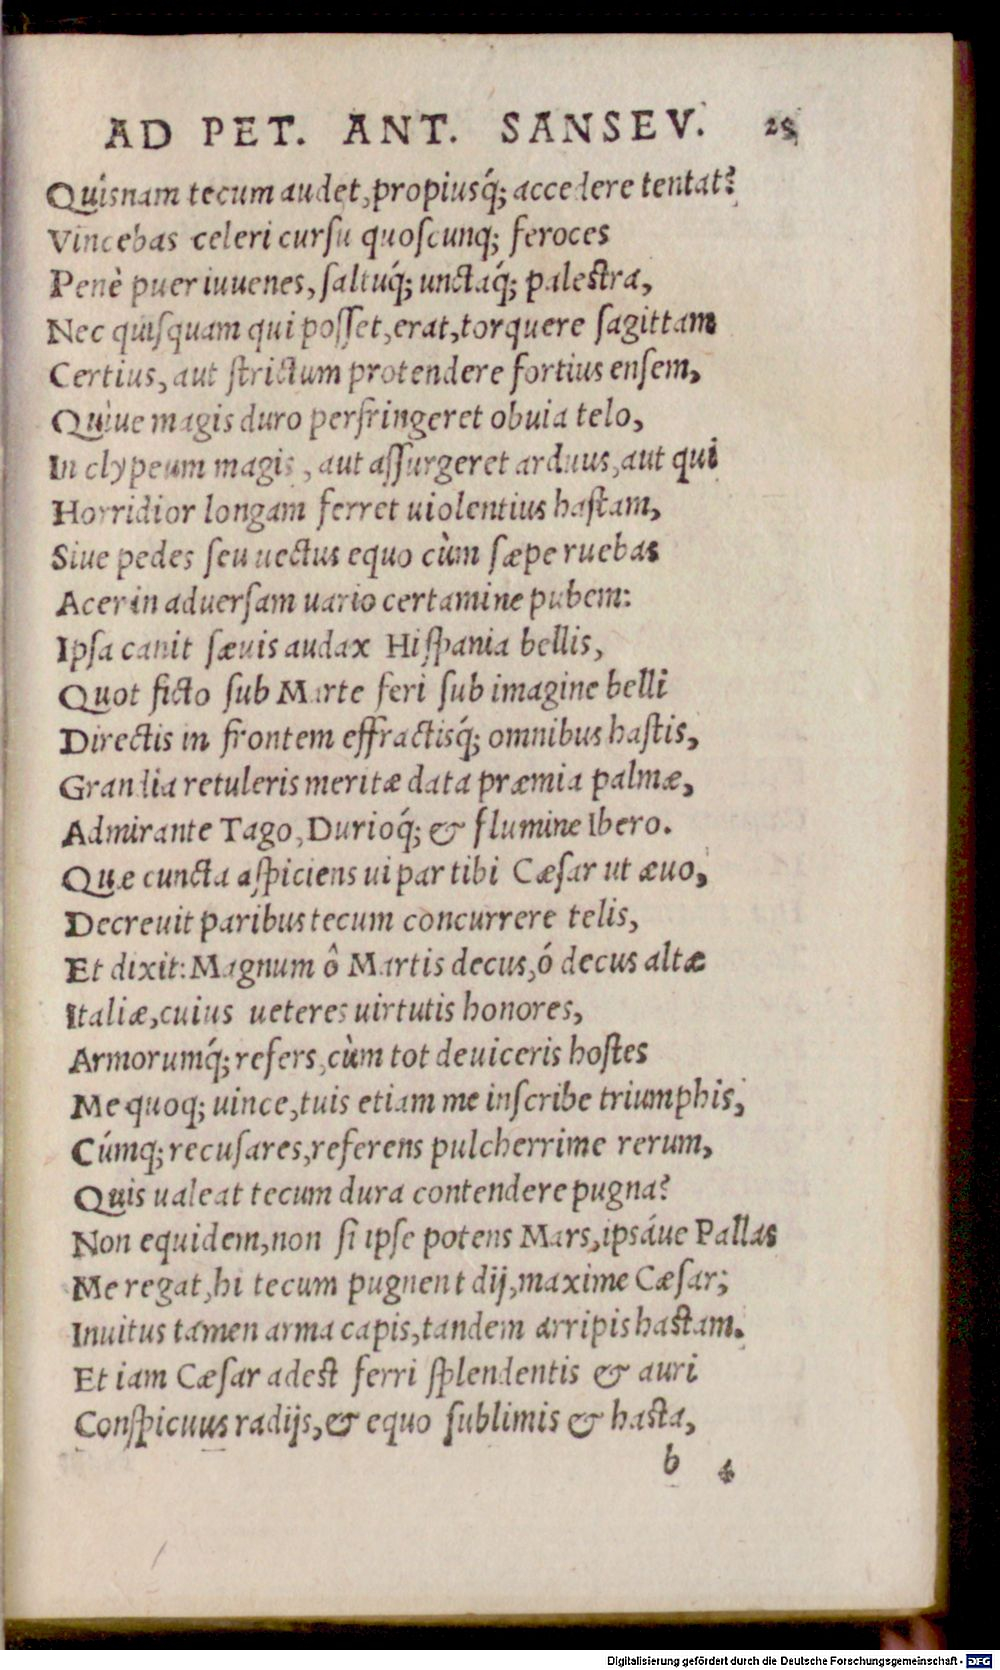 AD PET. ANT. SANSEV. 25
Quisnam tecum audet, propiusq́; accedere tentat?
Vincebas celeri cursu quoscunq; feroces
Penè puer iuuenes, saltuq́; unctaq́; palestra,
Nec quisquam qui posset, erat, torquere sagittam
Certius, aut strictum protendere fortius ensem,
Quiue magis duro perfringeret obuia telo,
In clypeum magis, aut assurgeret arduus, aut qui
Horridior longam ferret uiolentius hastam,
Siue pedes seu uectus equo cùm sæpe ruebas
Acer in aduersam uario certamine pubem:
Ipsa canit sæuis audax Hispania bellis,
Quot ficto sub Marte feri sub imagine belli
Directis in frontem effractisq́; omnibus hastis,
Grandia retuleris meritæ data præmia palmæ,
Admirante Tago, Durioq́; & flumine Ibero.
Quæ cuncta aspiciens ui par tibi Cæsar ut æuo,
Decreuit paribus tecum concurrere telis,
Et dixit: Magnum ô Martis decus, ó decus altæ
Italiæ, cuius ueteres uirtutis honores,
Armorumq́; refers, cùm tot deuiceris hostes
Me quoq; uince, tuis etiam me inscribe triumphis,
Cúmq; recusares, referens pulcherrime rerum,
Quis ualeat tecum dura contendere pugna?
Non equidem, non si ipse potens Mars, ipsáue Pallas
Me regat, hi tecum pugnent dij, maxime Cæsar;
Inuitus tamen arma capis, tandem arripis hastam.
Et iam Cæsar adest ferri splendentis & auri
Conspicuus radijs, & equo sublimis & hasta,
b 4
Digitalisierung gefördert durch die Deutsche Forschungsgemeinschaft - DFG